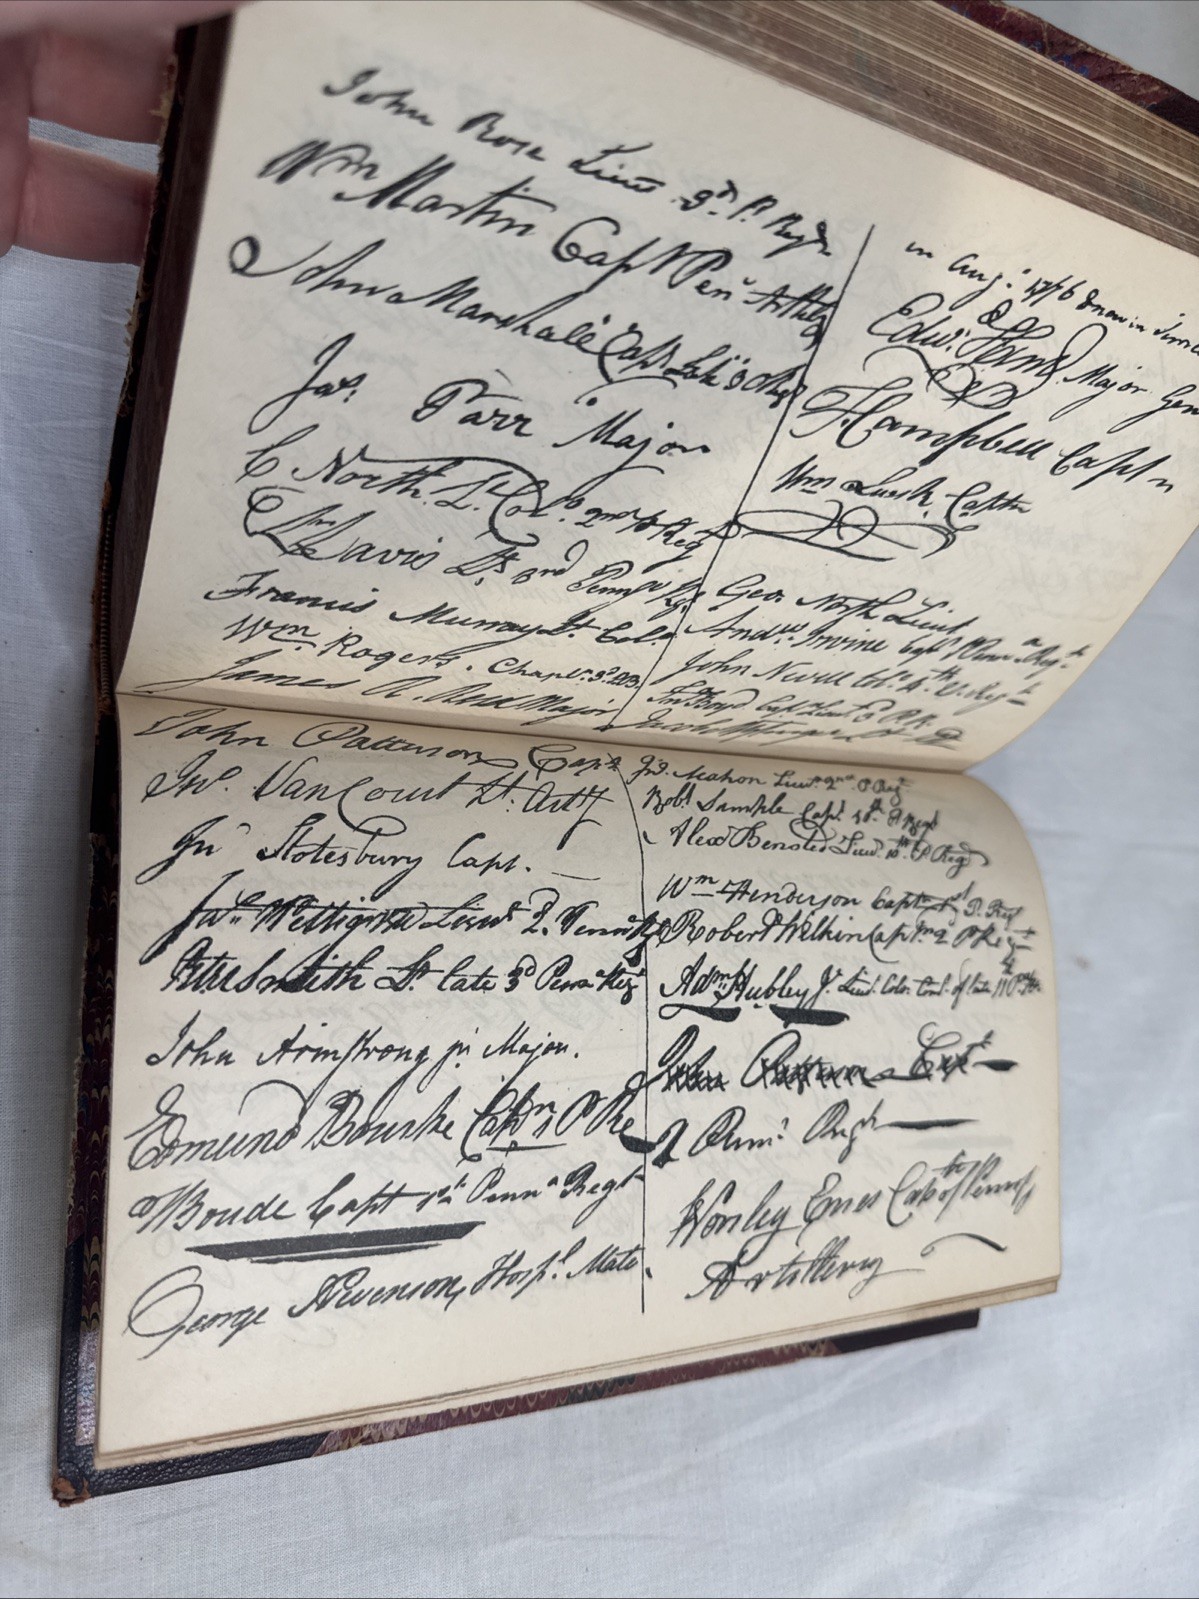 John Rose Lieut 3d. P. Regt
Wm Martin Capt Pen Artily
John Marshall Capt
Jas. Parr Major
C North Lt. Col. 2nd P Regt
Davis Lt. 3rd Penn
Francis Murray Lt. Col.
Wm Rogers. Chapl. 3d.
James R. Reid Major
in Augt 1776
Edwd. Hand Major Gen
Campbell Captn
Wm Lusk Captn
Geo. North Lieut
Andw. Irvine Capt Penn Regt
John Nevill Col. 4th V. Regt
Jno Boyd Capt Lieut
John Patterson Capt
Jno. Van Court Lt. Arty
Jno Stotesbury Capt.
Lieut 2. Penn Regt
Smith Lt. late 3d Penna Regt
John Armstrong jr Major.
Edmund Bourke Captn
Boude Capt Penna Regt
George Stevenson, Hospl. Mate.
Jno. Mahon Lieut 2nd P Regt
Robt Sample Capt. 10th P Regt
Alexr Bensted Lieut. 10th P Regt
Wm Henderson Captn P. Regt
Robert Wilkin Captn 2 P Regt
Adm Hubley Jr. Lieut. Colo. Comt. of late 11 P.
John Patterson Capt
2 Penn. Regt
Worsley Emes Capt of Pennsy
Artillery